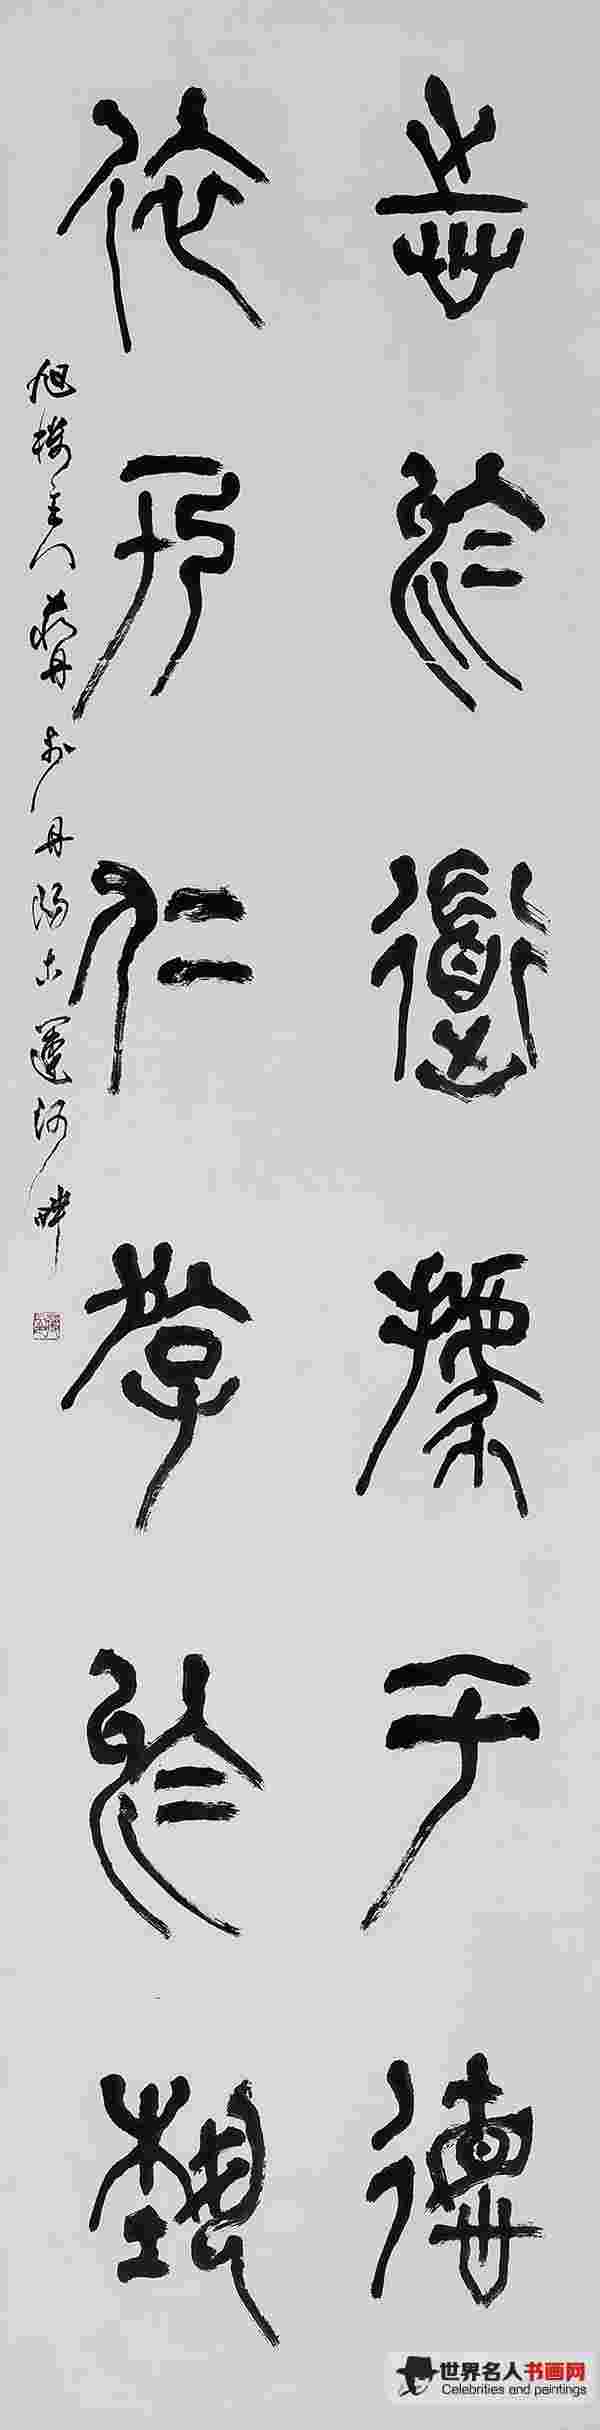 志於道據于德
依于仁游於藝
旭樓主人蔣丹於丹陽古運河畔
世界名人书画网
Celebrities and paintings